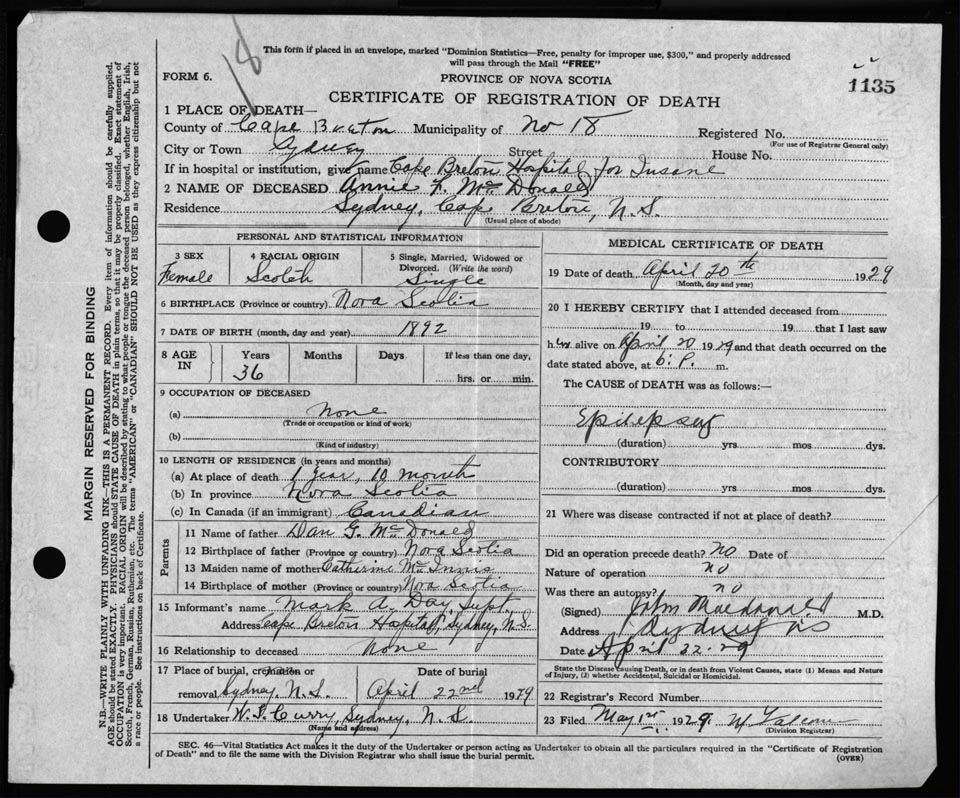 18
This form if placed in an envelope, marked "Dominion Statistics—Free, penalty for improper use, $300," and properly addressed
will pass through the Mail "FREE"
FORM 6.
PROVINCE OF NOVA SCOTIA
1135
CERTIFICATE OF REGISTRATION OF DEATH
1 PLACE OF DEATH—
County of Cape Breton Municipality of No 18 Registered No.
(For use of Registrar General only)
City or Town Sydney Street House No.
If in hospital or institution, give name Cape Breton Hospital for Insane
2 NAME OF DECEASED Annie F. McDonald
Residence Sydney, Cape Breton, N.S.
(Usual place of abode)
PERSONAL AND STATISTICAL INFORMATION
3 SEX 4 RACIAL ORIGIN 5 Single, Married, Widowed or
Divorced. (Write the word)
Female Scotch Single
6 BIRTHPLACE (Province or country) Nova Scotia
7 DATE OF BIRTH (month, day and year) 1892
8 AGE IN Years Months Days If less than one day,
36 hrs. or min.
9 OCCUPATION OF DECEASED
(a) None
(Trade or occupation or kind of work)
(b)
(Kind of industry)
10 LENGTH OF RESIDENCE (in years and months)
(a) At place of death 1 year, 10 month
(b) In province Nova Scotia
(c) In Canada (if an immigrant) Canadian
Parents
11 Name of father Dan G. McDonald
12 Birthplace of father (Province or country) Nova Scotia
13 Maiden name of mother Catherine McInnis
14 Birthplace of mother (Province or country) Nova Scotia
15 Informant's name Mark A. Day, Supt.
Address Cape Breton Hospital, Sydney, N.S.
16 Relationship to deceased None
17 Place of burial, cremation or Date of burial
removal Sydney, N.S. April 22nd 1929
18 Undertaker W. J. Curry, Sydney, N.S.
(Name and address)
MEDICAL CERTIFICATE OF DEATH
19 Date of death April 20th 1929
(Month, day and year)
20 I HEREBY CERTIFY that I attended deceased from
19 to 19 that I last saw
her alive on April 20 1929 and that death occurred on the
date stated above, at 6. P. m.
The CAUSE of DEATH was as follows:—
Epilepsy
(duration) yrs mos dys.
CONTRIBUTORY
(duration) yrs mos dys.
21 Where was disease contracted if not at place of death?
Did an operation precede death? no Date of
Nature of operation no
Was there an autopsy? no
(Signed) John Macdonald M.D.
Address Sydney NS
Date April 22-29
State the Disease causing Death, or in death from Violent Causes, state (1) Means and Nature
of Injury, (2) whether Accidental, Suicidal or Homicidal.
22 Registrar's Record Number
23 Filed May 1st 1929
(Division Registrar)
SEC. 46—Vital Statistics Act makes it the duty of the Undertaker or person acting as Undertaker to obtain all the particulars required in the "Certificate of Registration
of Death" and to file the same with the Division Registrar who shall issue the burial permit. (OVER)
MARGIN RESERVED FOR BINDING
N.B.—WRITE PLAINLY WITH UNFADING INK—THIS IS A PERMANENT RECORD. Every item of information should be carefully supplied.
AGE should be stated EXACTLY. PHYSICIANS should STATE CAUSE OF DEATH in plain terms, so that it may be properly classified. Exact statement of
OCCUPATION is very important. RACIAL ORIGIN will be described by stating to what people or tongue the deceased person belonged, whether English, Irish,
Scotch, French, German, Russian, Ruthenian, etc. The terms "AMERICAN" or "CANADIAN" SHOULD NOT BE USED as they express citizenship but not
a race or people. See instructions on back of Certificate.